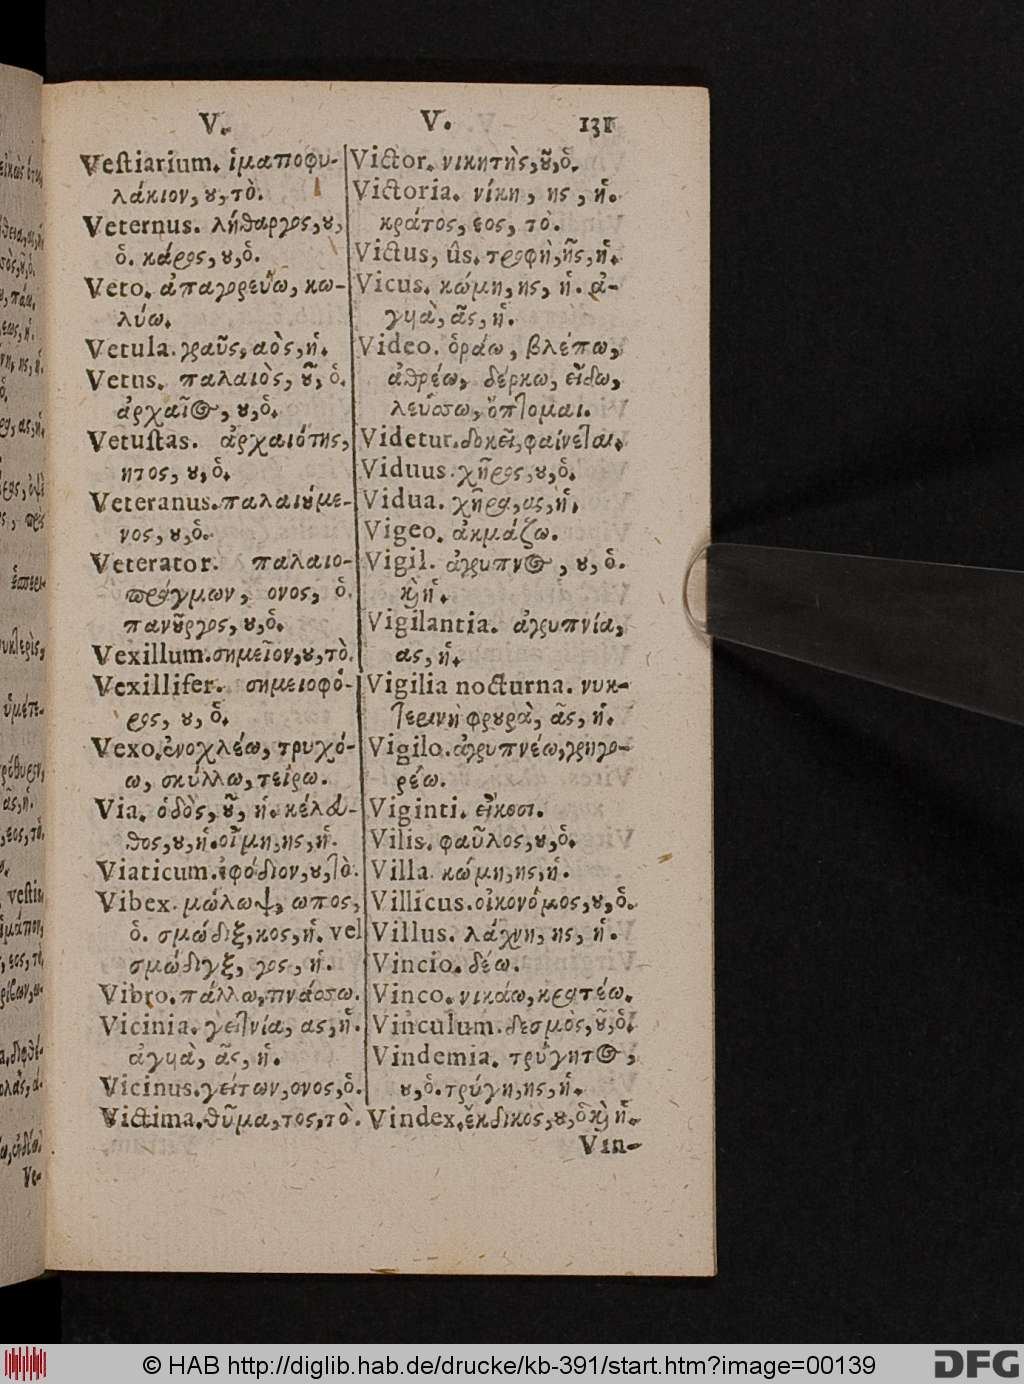 V. V. 131
Vestiarium. ἱμαποφυ-
λάκιον, ου, τὸ.
Veternus. λήθαργος, ου,
ὁ. κάρος, ου, ὁ.
Veto. ἀπαγορεύω, κω-
λύω.
Vetula. γραῦς, αὸς, ἡ.
Vetus. παλαιὸς, οῦ, ὁ.
ἀρχαῖος, ου, ὁ.
Vetustas. ἀρχαιότης,
ητος, ου, ὁ.
Veteranus. παλαιούμε-
νος, ου, ὁ.
Veterator. παλαιο-
πράγμων, ονος, ὁ.
πανοῦργος, ου, ὁ.
Vexillum. σημεῖον, ου, τὸ.
Vexillifer. σημειοφό-
ρος, ου, ὁ.
Vexo. ἐνοχλέω, τρυχό-
ω, σκύλλω, τείρω.
Via. ὁδὸς, οῦ, ἡ. κέλευ-
θος, ου, ἡ. οἴμη, ης, ἡ.
Viaticum. ἐφόδιον, ου, τὸ.
Vibex. μώλωψ, ωπος,
ὁ. σμώδιξ, κος, ἡ. vel
σμώδιγξ, γος, ἡ.
Vibro. πάλλω, πνάσσω.
Vicinia. γειτνία, ας, ἡ.
ἀγυιὰ, ᾶς, ἡ.
Vicinus. γείτων, ονος, ὁ.
Victima. θῦμα, τος, τὸ.
Victor. νικητὴς, οῦ, ὁ.
Victoria. νίκη, ης, ἡ.
κράτος, εος, τὸ.
Victus, ûs. τροφὴ, ῆς, ἡ.
Vicus. κώμη, ης, ἡ. ἀ-
γυιὰ, ᾶς, ἡ.
Video. ὁράω, βλέπω,
ἀθρέω, δέρκω, εἴδω,
λεύσσω, ὄπτομαι.
Videtur. δοκεῖ, φαίνεται.
Viduus. χῆρος, ου, ὁ.
Vidua. χῆρα, ας, ἡ.
Vigeo. ἀκμάζω.
Vigil. ἀγρυπνος, ου, ὁ.
καὶ ἡ.
Vigilantia. ἀγρυπνία,
ας, ἡ.
Vigilia nocturna. νυκ-
τερινὴ φρουρὰ, ᾶς, ἡ.
Vigilo. ἀγρυπνέω, γρηγο-
ρέω.
Viginti. εἴκοσι.
Vilis. φαῦλος, ου, ὁ.
Villa. κώμη, ης, ἡ.
Villicus. οἰκονόμος, ου, ὁ.
Villus. λάχνη, ης, ἡ.
Vincio. δέω.
Vinco. νικάω, κρατέω.
Vinculum. δεσμὸς, οῦ, ὁ.
Vindemia. τρύγητος,
ου, ὁ. τρύγη, ης, ἡ.
Vindex. ἔκδικος, ου, ὁ καὶ ἡ.
Vin-
© HAB http://diglib.hab.de/drucke/kb-391/start.htm?image=00139
DFG